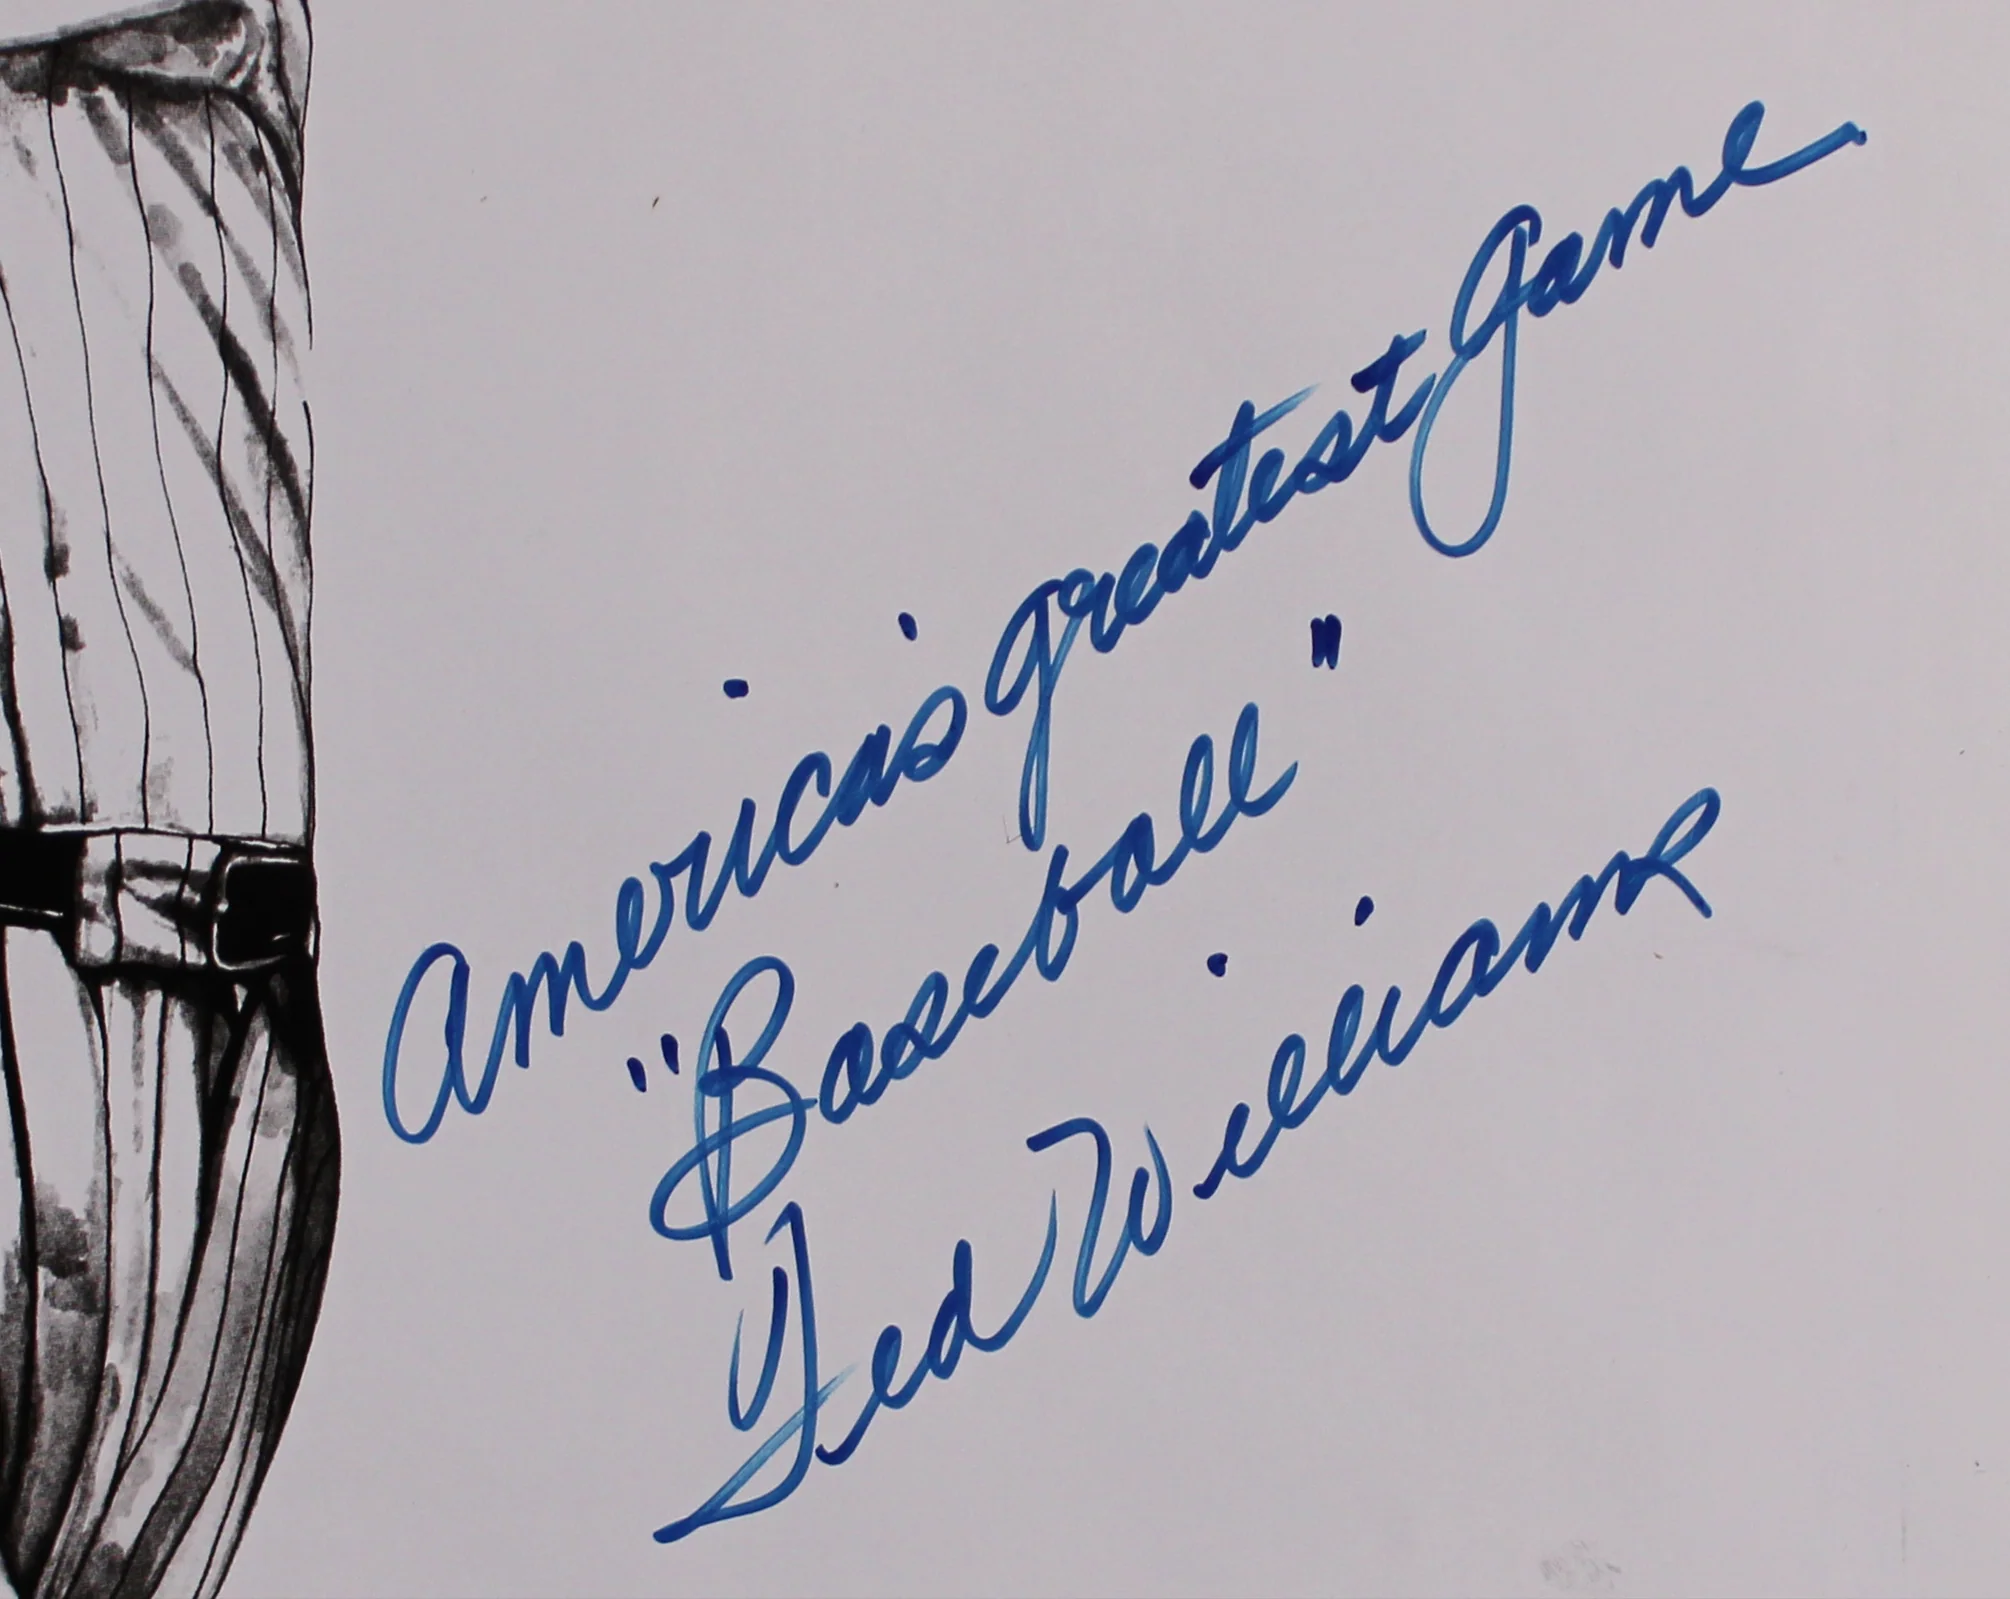 America's greatest Game
"Baseball"
Ted Williams